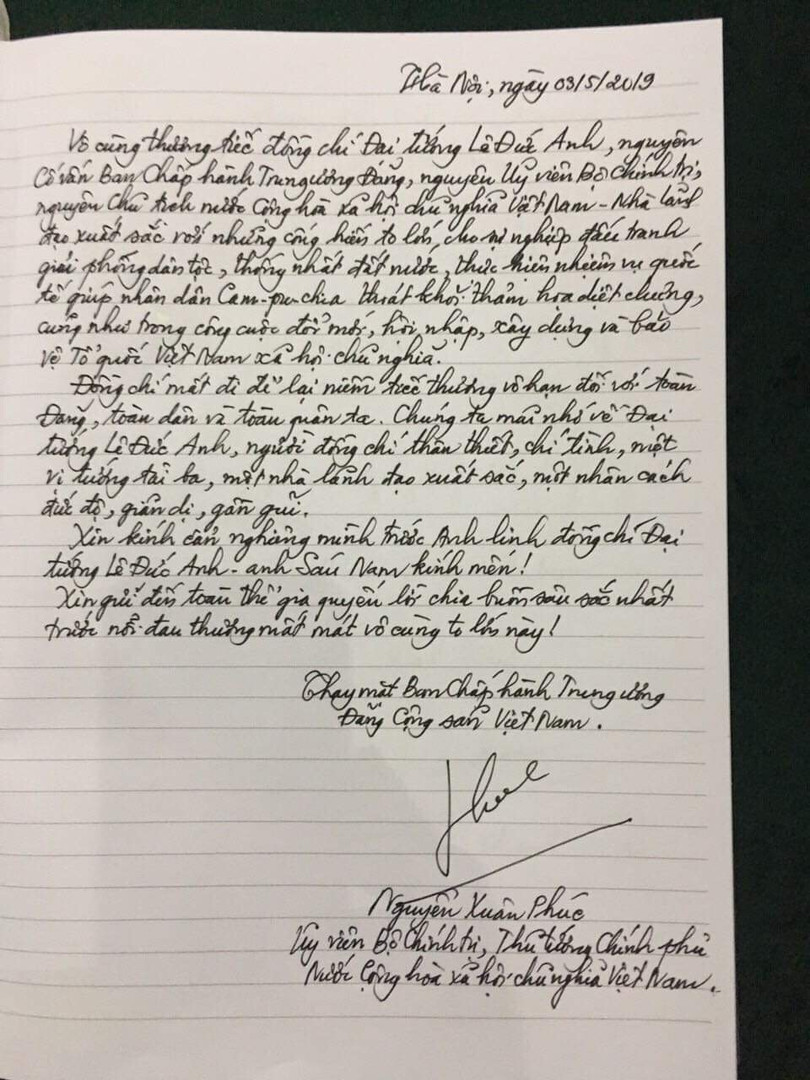 Hà Nội, ngày 03/5/2019
Vô cùng thương tiếc đồng chí Đại tướng Lê Đức Anh, nguyên
Cố vấn Ban Chấp hành Trung ương Đảng, nguyên Uỷ viên Bộ Chính trị,
nguyên Chủ tịch nước Cộng hoà xã hội chủ nghĩa Việt Nam - Nhà lãnh
đạo xuất sắc với những cống hiến to lớn, cho sự nghiệp đấu tranh
giải phóng dân tộc, thống nhất đất nước, thực hiện nhiệm vụ quốc
tế giúp nhân dân Cam-pu-chia thoát khỏi thảm hoạ diệt chủng,
cũng như trong công cuộc đổi mới, hội nhập, xây dựng và bảo
vệ Tổ quốc Việt Nam xã hội chủ nghĩa.
Đồng chí mất đi để lại niềm tiếc thương vô hạn đối với toàn
Đảng, toàn dân và toàn quân ta. Chúng ta mãi nhớ về Đại
tướng Lê Đức Anh, người đồng chí thân thiết, chí tình, một
vị tướng tài ba, một nhà lãnh đạo xuất sắc, một nhân cách
đức độ, giản dị, gần gũi.
Xin kính cẩn nghiêng mình trước Anh linh đồng chí Đại
tướng Lê Đức Anh - anh Sáu Nam kính mến!
Xin gửi đến toàn thể gia quyến lời chia buồn sâu sắc nhất
trước nỗi đau thương mất mát vô cùng to lớn này!
Thay mặt Ban Chấp hành Trung ương
Đảng Cộng sản Việt Nam.
Nguyễn Xuân Phúc
Uỷ viên Bộ Chính trị, Thủ tướng Chính phủ
Nước Cộng hoà xã hội chủ nghĩa Việt Nam.